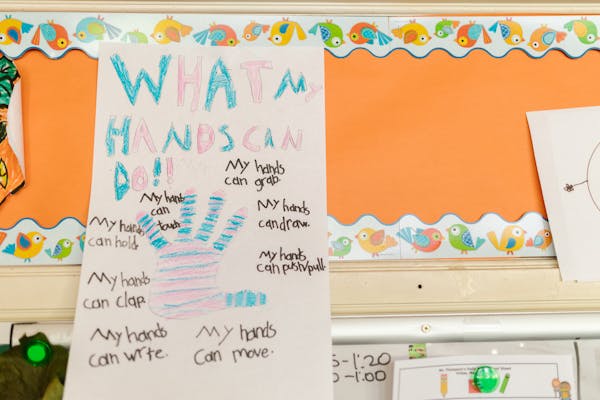 WHAT My
HANDS CAN
DO!!
My hands
can grab.
My hands
can
touch.
My hands
can draw.
My hands
can hold.
My hands
can push/pull.
My hands
can clap.
My hands
can write.
My hands
can move.
-1:20
-1:00